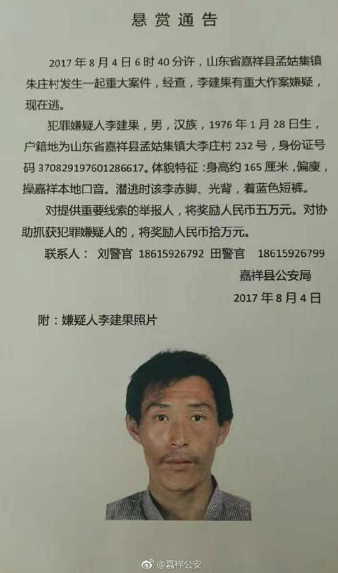 悬赏通告
2017年8月4日6时40分许，山东省嘉祥县孟姑集镇
朱庄村发生一起重大案件，经查，李建果有重大作案嫌疑，
现在逃。
犯罪嫌疑人李建果，男，汉族，1976年1月28日生，
户籍地为山东省嘉祥县孟姑集镇大李庄村232号，身份证号
码370829197601286617。体貌特征：身高约165厘米，偏瘦，
操嘉祥本地口音。潜逃时该李赤脚、光背，着蓝色短裤。
对提供重要线索的举报人，将奖励人民币五万元。对协
助抓获犯罪嫌疑人的，将奖励人民币拾万元。
联系人： 刘警官 18615926792 田警官 18615926799
嘉祥县公安局
2017年8月4日
附：嫌疑人李建果照片
@嘉祥公安